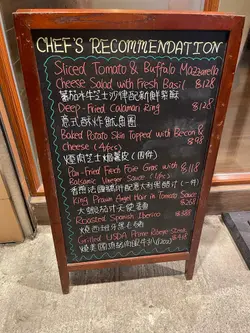 CHEF'S RECOMMENDATION
Sliced Tomato & Buffalo Mozzarella
Cheese Salad with Fresh Basil $128
蕃茄水牛芝士沙律配新鮮紫蘇
Deep-Fried Calamari Ring $128
意式酥炸魷魚圈
Baked Potato Skin Topped with Bacon &
Cheese (4/pcs) $98
煙肉芝士焗薯皮 (四件)
Pan-Fried Fresh Foie Gras with $118
Balsamic Vinegar Sauce (1/pc)
香煎法國鵝肝配意大利黑醋汁(一件)
King Prawn Angel Hair in Tomato Sauce
大蝦茄汁天使麵 $268
Roasted Spanish Iberico $388
燒西班牙黑毛豬
Grilled USDA Prime Ribeye Steak